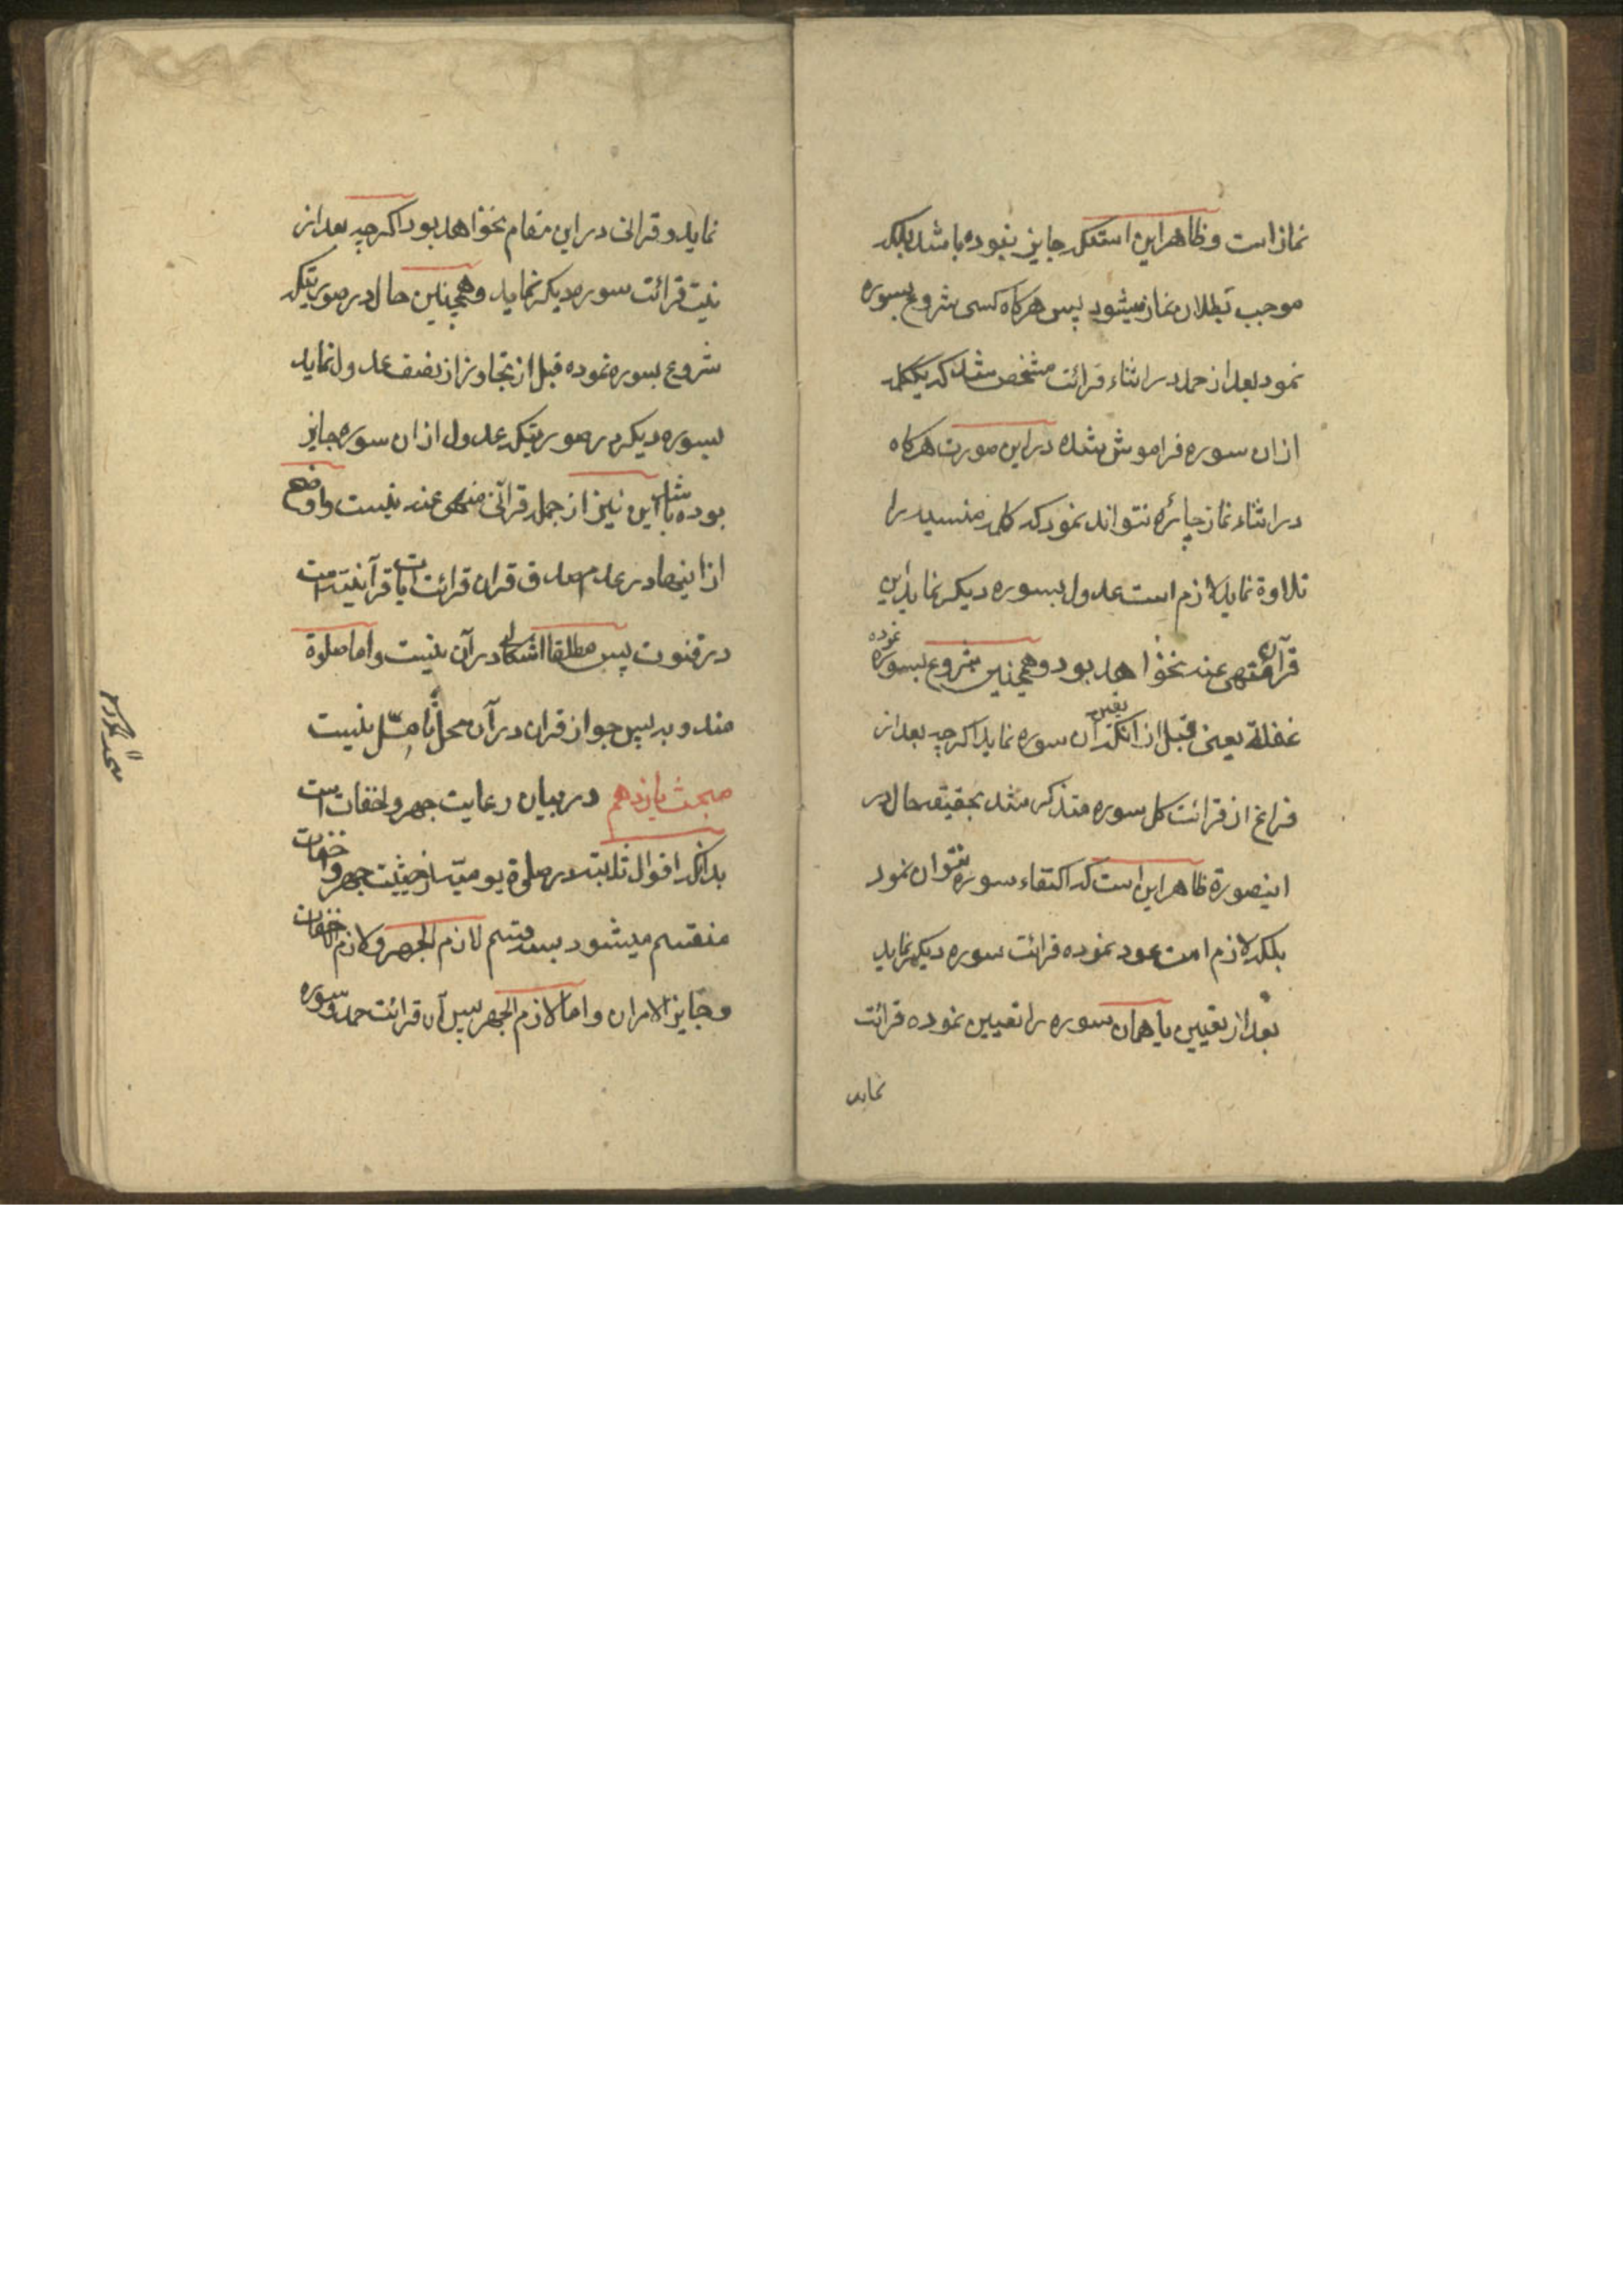 نماز است و ظاهر این است که جایز نبوده باشد بلکه
موجب بطلان نماز میشود پس هرگاه کسی شروع بسوره
نمود بعد از حمد در اثناء قرائت مشخص شد که یک کلمه
ازان سوره فراموش شده در این صورت هرگاه
در اثناء نماز چاره نتواند نمود که کلمه منسیه را
تلاوة نماید لازم است عدول بسوره دیگر نماید این
قرآن منهی عنه نخواهد بود و همچنین شروع بسوره نموده
غفلة یعنی قبل از آنکه تعیین آن سوره نماید اگرچه بعد از
فراغ از قرائت کل سوره متذکر شد بحقیقه حال در
اینصورة ظاهر این است که اکتفاء سوره نتوان نمود
بلکه لازم است عود نموده قرائت سوره دیگر نماید
بعد از تعیین یا همان سوره را تعیین نموده قرائت
نماید
نماید و قرانی در این مقام نخواهد بود اگرچه بعد از
نیت قرائت سوره دیگر نماید و همچنین حال در صورتیکه
شروع بسوره نموده قبل از تجاوز از نصف عدول نماید
بسوره دیگر در صورتیکه عدول ازان سوره جایز
بوده باشد این نیز از جمله قرآن منهی عنه نیست و اوضح
از اینها در عدم صدق قران قرائت آیات قرآنیه است
در قنوت پس مطلقا اشکالی در آن نیست و اما صلوة
مندوبه پس جواز قران در آن محل تامّل نیست
مبحث یازدهم در بیان رعایت جهر و اخفات است
بدانکه اقوال ثابته در صلوة یومیّه از حیثیت جهر و اخفات
منقسم میشود بسه قسم لازم الجهر و لازم الاخفات
و جایز الامران و اما لازم الجهر پس آن قرائت حمد و سوره